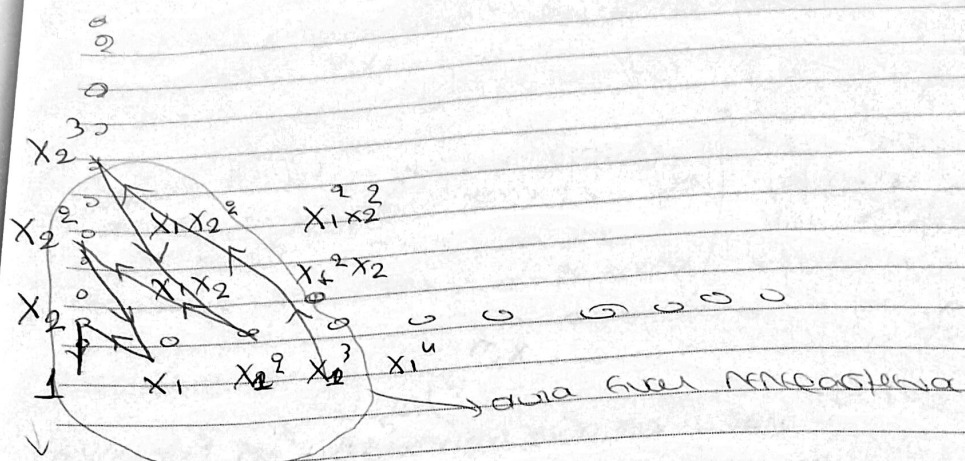 2
3
X₂
X₂² X₁X₂² X₁²X₂²
X₁²X₂
X₂ X₁X₂
1 X₁ X₂² X₂³ X₁⁴
αυτα ειναι πεπερασμενα